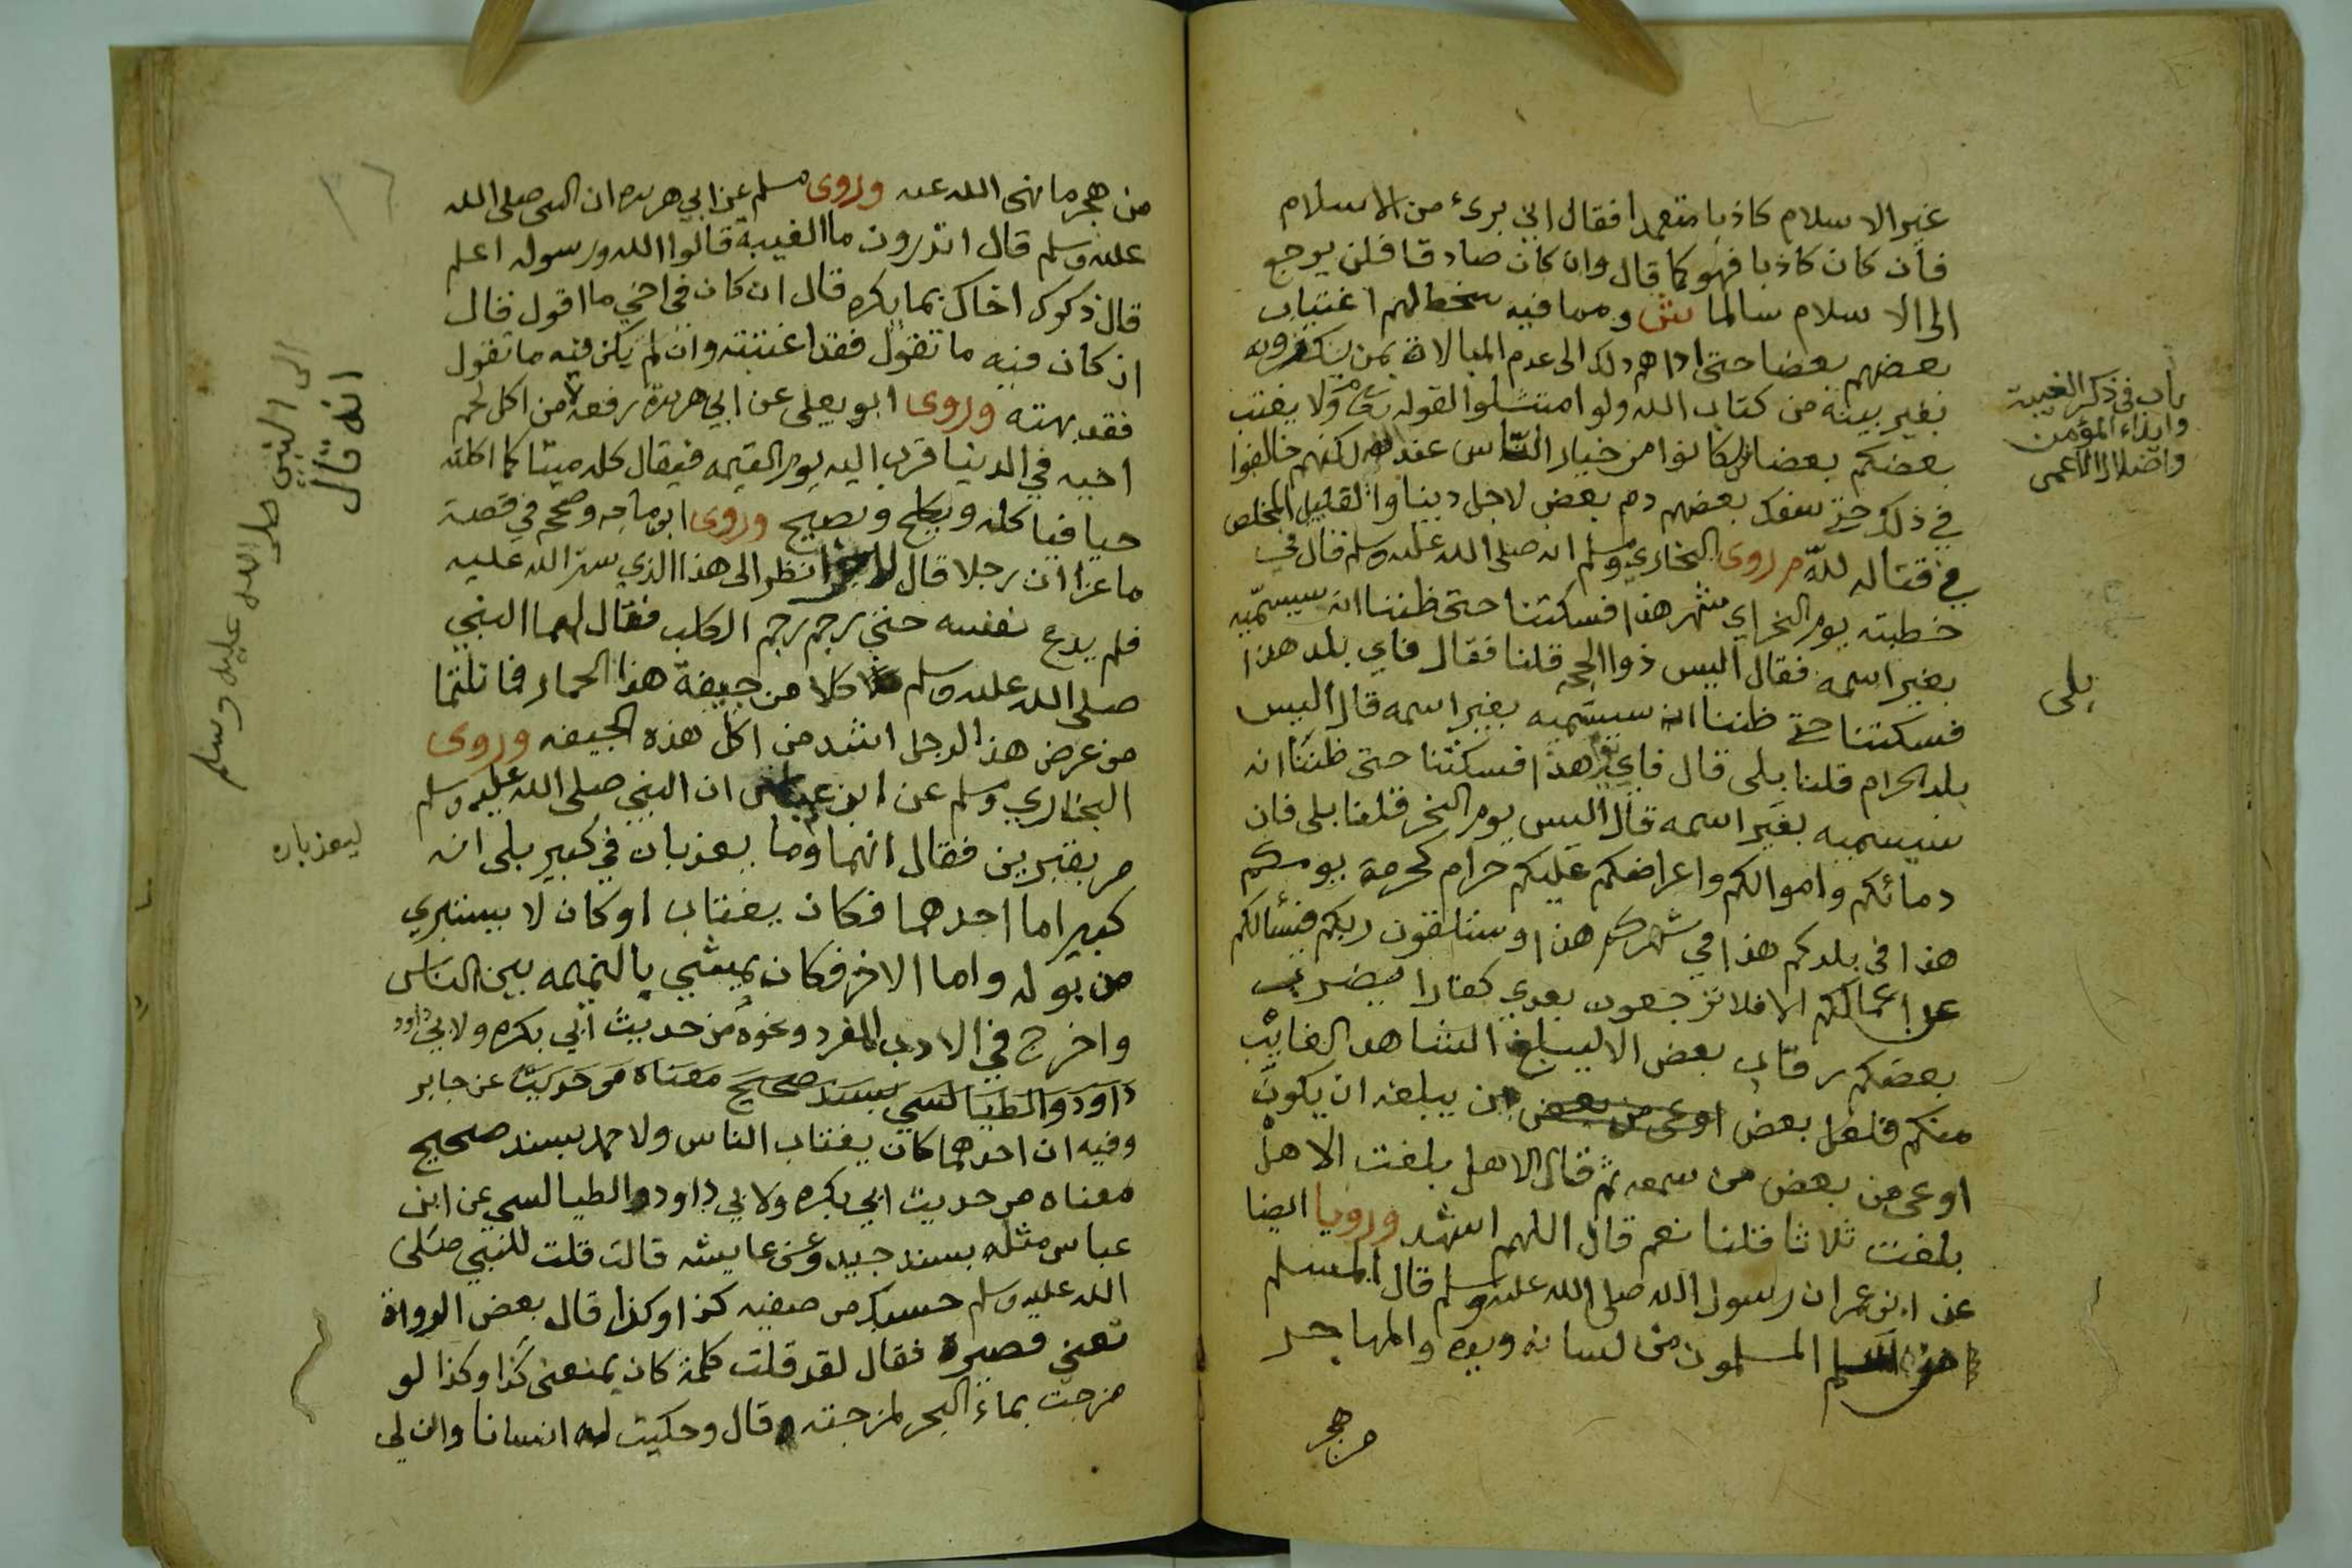 غير الاسلام كاذبا متعمدا فقال اني برئ من الاسلام
فان كان كاذبا فهو كما قال وان كان صادقا فلن يرجع
الى الاسلام سالما ش ومما فيه سخط لهم اغتياب
بعضهم بعضا حتى اداهم ذلك الى عدم المبالاة بمن
بغير بينة من كتاب الله ولو امتثلوا لقوله تعا ولا يغتب
بعضكم بعضا لكانوا من خيار الناس عند الله لكنهم خالفوا
في ذلك حتى سفك بعضهم دم بعض لاجل دينا والقليل المخلص
في قتاله لله م روى البخاري ومسلم انه صلى الله عليه وسلم قال في
خطبته يوم النحر اي شهر هذا فسكتنا حتى ظننا انه سيسمّيه
بغير اسمه فقال اليس ذوا الحجه قلنا فقال فاي بلد هذا
فسكتنا حتى ظننا انه سيسميه بغير اسمه قال اليس
بلد الحرام قلنا بلى قال فاي هذا فسكتنا حتى ظننا انه
سيسميه بغير اسمه قال اليس يوم النحر قلنا بلى فان
دمائكم واموالكم واعراضكم عليكم حرام كحرمة يومكم
هذا في بلدكم هذا في شهركم هذا وستلقون ربكم فيسالكم
عن اعمالكم الا فلا ترجعون بعدي كفارا يضرب
بعضكم رقاب بعض الا ليبلغ الشاهد الغايب
منكم فلعل بعض اوعى من بعض من يبلغه ان يكون
اوعى من بعض من سمعه ثم قال الا هل بلغت الا هل
بلغت ثلاثا قلنا نعم قال اللهم اشهد ورويا ايضا
عن ابن عمر ان رسول الله صلى الله عليه وسلم قال المسلم
من سلم المسلمون من لسانه ويده والمهاجر
من هجر
باب في ذكر الغيبة
وايذاء المؤمن
واضلال الاعمى
بلى
من هجر ما نهى الله عنه وروى مسلم عن ابي هريره ان النبى صلى الله
عليه وسلم قال اتدرون ما الغيبة قالوا الله ورسوله اعلم
قال ذكرك اخاك بما يكره قال ان كان في اخي ما اقول قال
ان كان فيه ما تقول فقد اغتبته وان لم يكن فيه ما تقول
فقد بهته وروى ابو يعلى عن ابي هريرة رفعه من اكل لحم
اخيه في الدنيا قرب اليه يوم القيمه فيقال كله ميتا كما اكلته
حيا فياكله ويكلح ويصيح وروى ابن ماجه وصحح في قصة
ماعز ان رجلا قال لاخر انظر الى هذا الذي ستر الله عليه
فلم يدع نفسه حتى رجم رجم الكلب فقال لهما النبي
صلى الله عليه وسلم كلا من جيفة هذا الحمار فما نلتما
من عرض هذا الرجل اشد من اكل هذه الجيفه وروى
البخاري ومسلم عن ابن عباس ان النبي صلى الله عليه وسلم
مر بقبرين فقال انهما وما يعذبان في كبير بلى انه
كبير اما احدهما فكان يغتاب او كان لا يستبري
من بوله واما الاخر فكان يمشي بالنميمه بين الناس
واخرج في الادب المفرد ونحوه من حديث ابي بكره ولابي داود
داود والطيالسي بسند صحيح معناه من حديث عن جابر
وفيه ان احدهما كان يغتاب الناس ولاحمد بسند صحيح
معناه من حديث ابي بكره ولابي داود والطيالسي عن ابن
عباس مثله بسند جيد وعن عايشه قالت قلت للنبي صلى
الله عليه وسلم حسبك من صفيه كذا وكذا قال بعض الرواة
تعني قصيرة فقال لقد قلت كلمة كان يمنعنى كذا وكذا لو
مزجت بماء البحر لمزجته قال وحكيت له انسانا وان لي
انه قال
الى النبي صلى الله عليه وسلم
ليعذبان